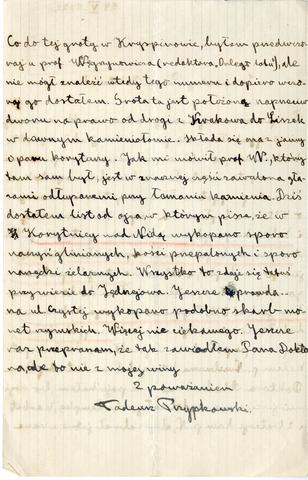 Co do tej groty w Kryspinowie, byłem przedwczo
raj u prof. Węgrzynowicza (redaktora „Orlego Lotu”), ale
nie mógł znaleźć wtedy tego numeru i dopiero wczo
raj go dostałem. Grota ta jest położona naprzeciw
dworu na prawo od drogi z Krakowa do Liszek
w dawnym kamieniołomie. Składa się ona z jamy
o paru korytarzy. Jak mi mówił prof. W., który
tam sam był, jest w znacznej części zawalona gła
zami odłupanymi przy łamaniu kamienia. Dziś
dostałem list od ojca w którym pisze, że w
Korytnicy nad Nidą wykopano sporo
naczyń glinianych, kości przepalonych i sporo
narzędzi żelaznych. Wszystko to zdaje się tatuś
przywiezie do Jędrzejowa. Jeszcze prawda
na ul. Czystej wykopano podobno skarb mo
net rzymskich. Więcej nic ciekawego. Jeszcze
raz przepraszam, że tak zawiodłem Pana Dokto
ra, ale to nie z mojej winy
Z poważaniem
Tadeusz Przypkowski.